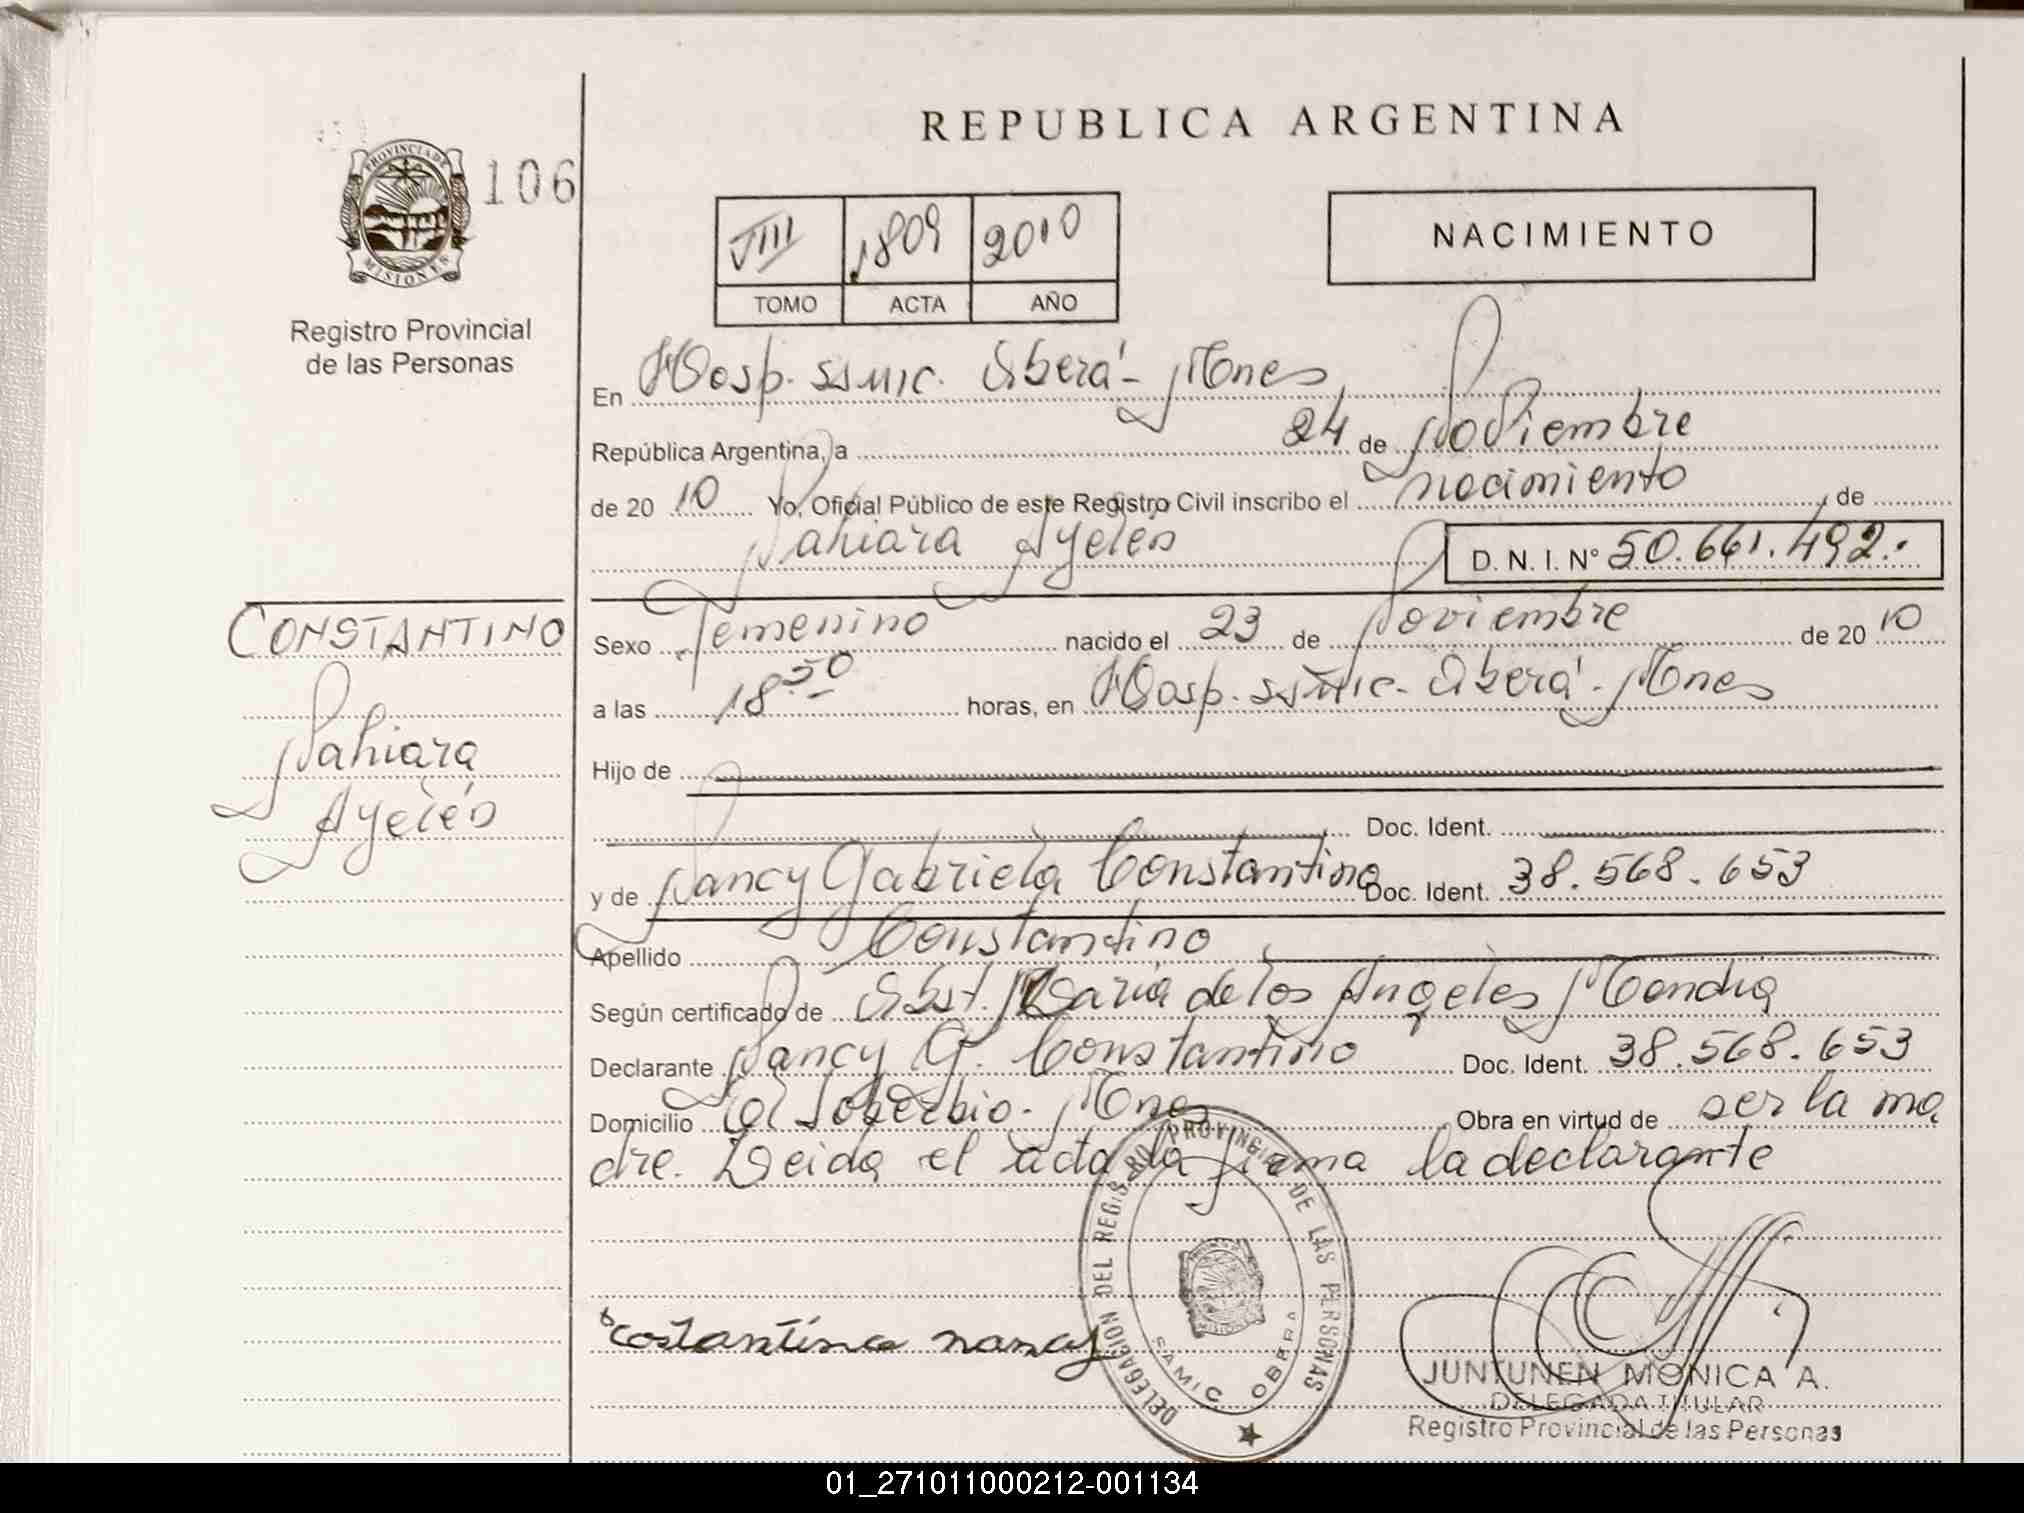 REPUBLICA ARGENTINA
PROVINCIA DE
MISIONES
106
Registro Provincial
de las Personas
VIII 1809 2010
TOMO ACTA AÑO
NACIMIENTO
En Hosp. SAMIC. Oberá - Mnes
República Argentina, a 24 de Noviembre
de 20 10 Yo, Oficial Público de este Registro Civil inscribo el nacimiento de
Nahiara Ayelén D. N. I. Nº 50.661.492.
CONSTANTINO
Nahiara
Ayelén
Sexo Femenino nacido el 23 de Noviembre de 20 10
a las 18.50 horas, en Hosp. SAMIC - Oberá - Mnes
Hijo de
Doc. Ident.
y de Nancy Gabriela Constantino Doc. Ident. 38.568.653
Apellido Constantino
Según certificado de Obst. María de los Angeles
Declarante Nancy G. Constantino Doc. Ident. 38.568.653
Domicilio El Soberbio - Mnes Obra en virtud de ser la ma
dre. Leida el acta la firma la declarante
DELEGACION DEL REGISTRO PROVINCIAL DE LAS PERSONAS
SAMIC OBERA
costantino nancy
JUNTUNEN MONICA A.
DELEGADA TITULAR
Registro Provincial de las Personas
01_271011000212-001134